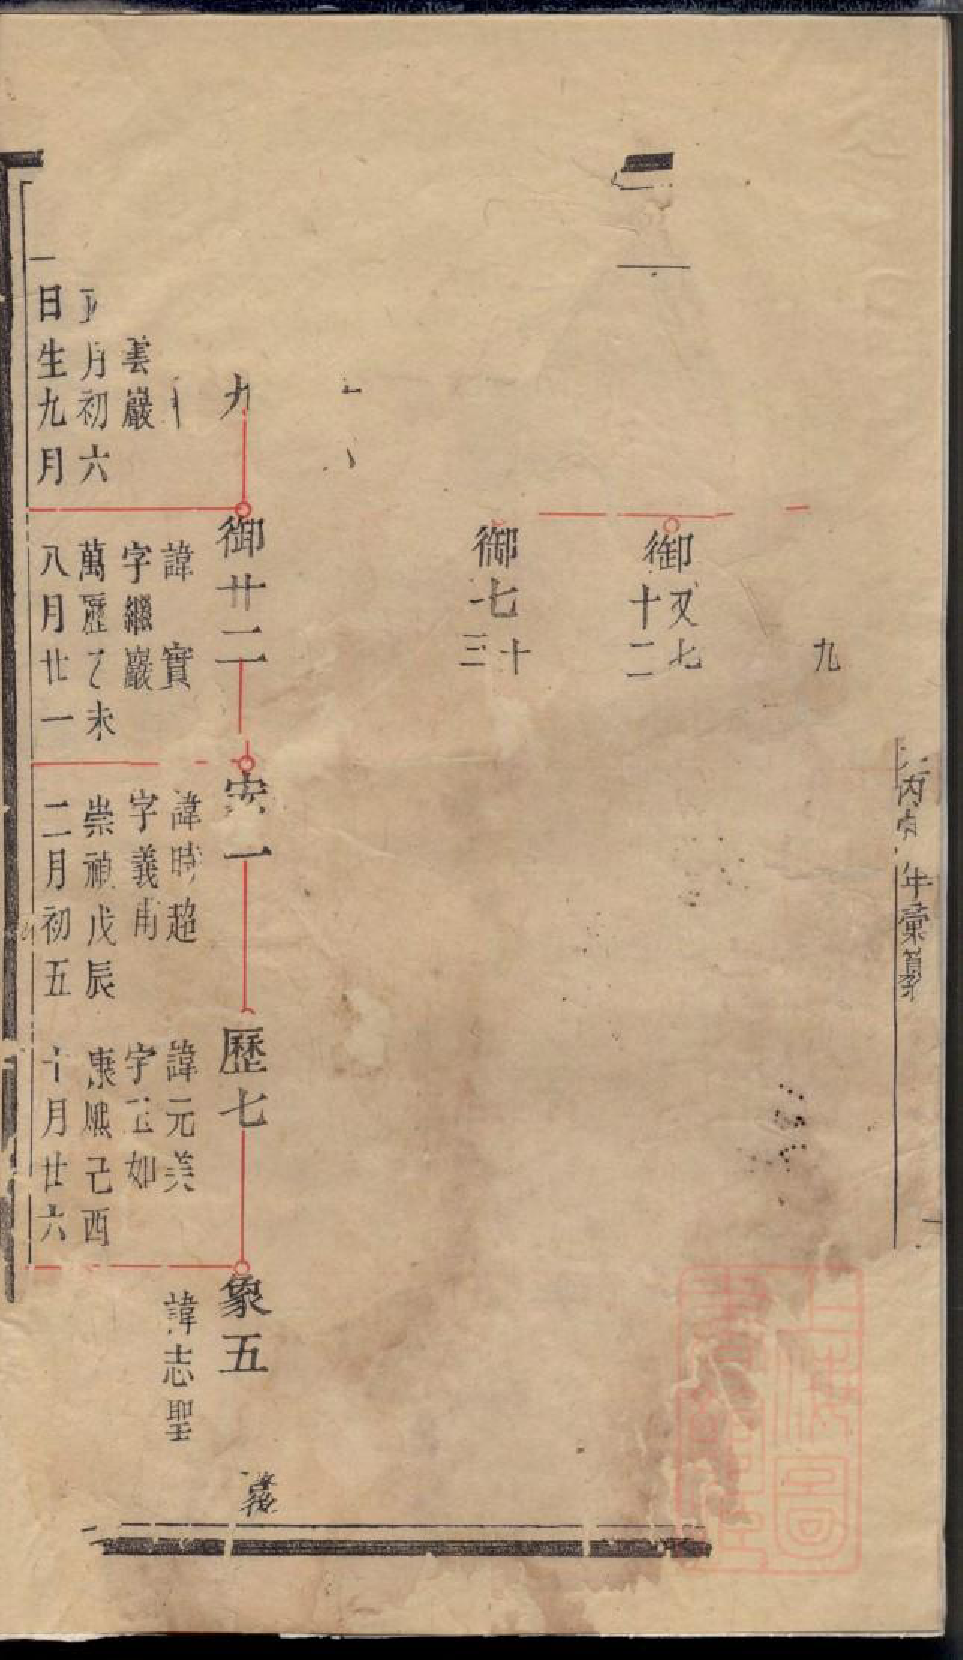 九
御又七十二
御七十三
九
雲巖
月初六
日生九月
御廿二
諱實
字繼巖
萬歷乙未
八月廿一
安一
諱時超
字義甫
崇禎戊辰
二月初五
歷七
諱元美
字玉如
康熙己酉
十月廿六
象五
諱志聖
年彙纂